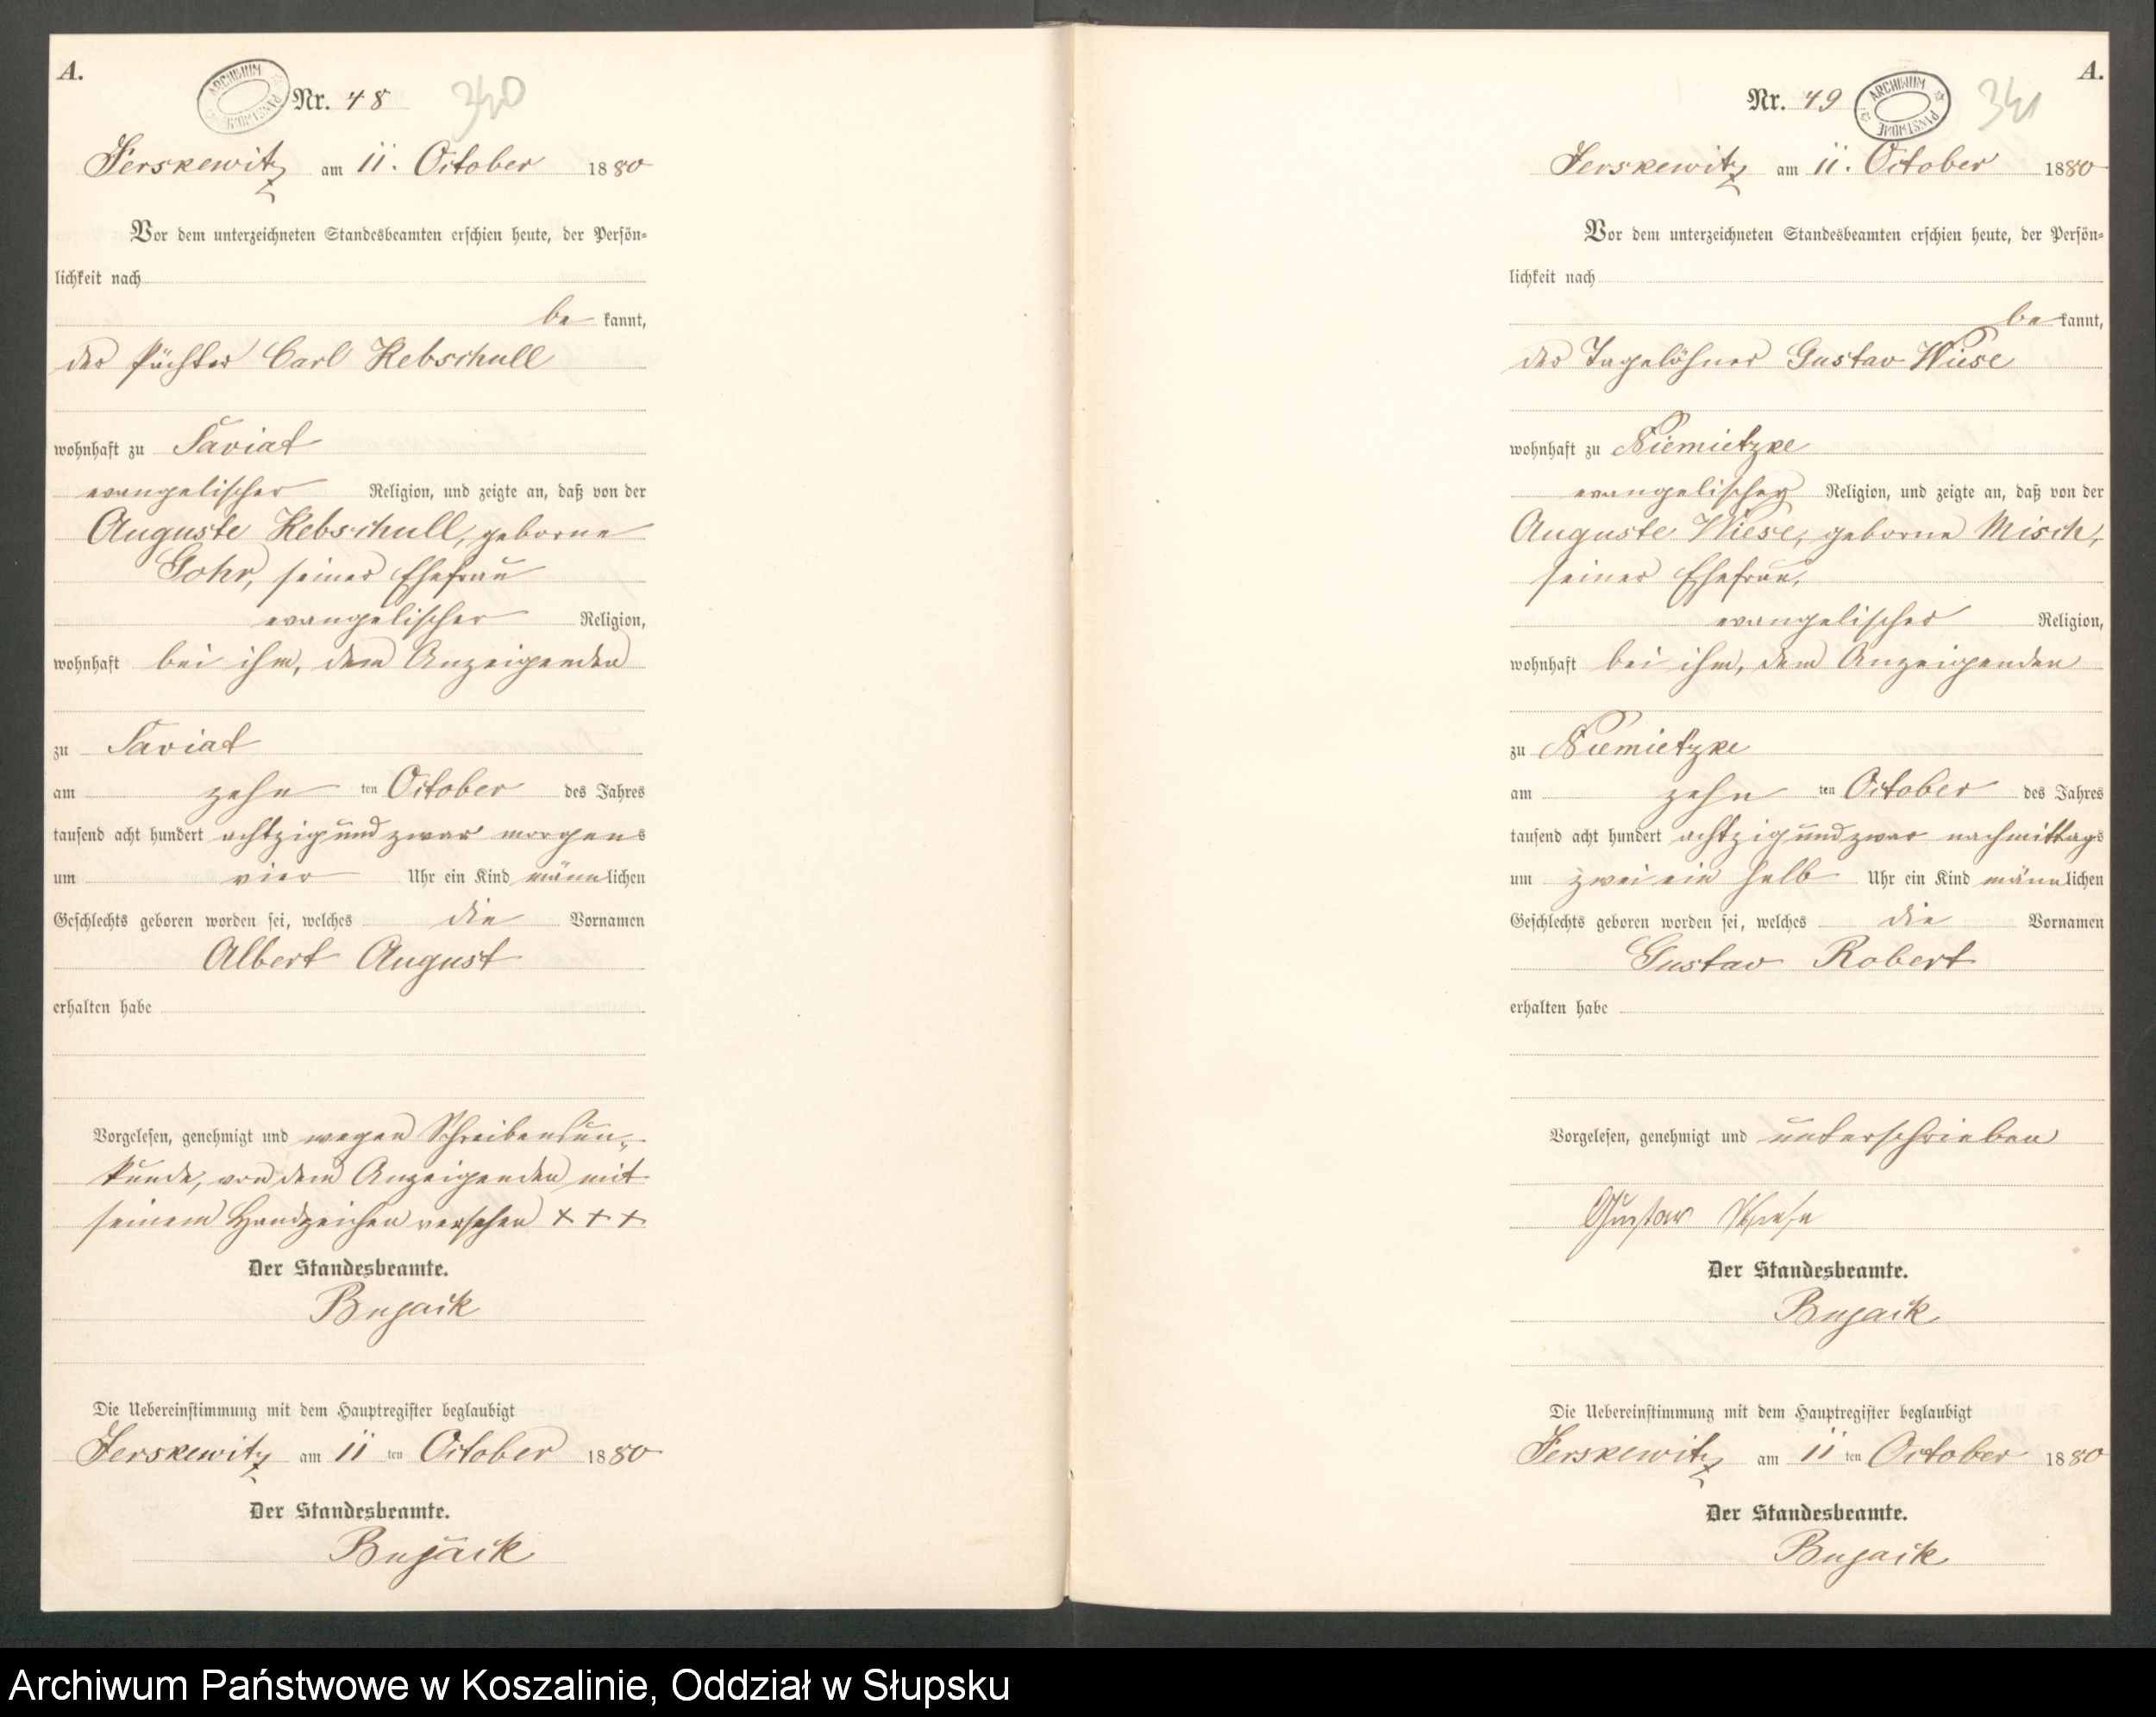 A.
ARCHIWUM PAŃSTWOWE
Nr. 48
340
Jerskewitz am 11. October 1880
Vor dem unterzeichneten Standesbeamten erschien heute, der Persön-
lichkeit nach
be kannt,
der Pächter Carl Rebschull
wohnhaft zu Saviat
evangelischer Religion, und zeigte an, daß von der
Auguste Rebschull, geborne
Gohr, seiner Ehefrau
evangelischer Religion,
wohnhaft bei ihm, dem Anzeigenden
zu Saviat
am zehn ten October des Jahres
tausend acht hundert achtzig und zwar morgens
um vier Uhr ein Kind männlichen
Geschlechts geboren worden sei, welches die Vornamen
Albert August
erhalten habe
Vorgelesen, genehmigt und wegen Schreibensun-
kunde, von dem Anzeigenden mit
seinem Handzeichen versehen + + +
Der Standesbeamte.
Bujack
Die Uebereinstimmung mit dem Hauptregister beglaubigt
Jerskewitz am 11 ten October 1880
Der Standesbeamte.
Bujack
A.
Nr. 49
ARCHIWUM PAŃSTWOWE
341
Jerskewitz am 11. October 1880
Vor dem unterzeichneten Standesbeamten erschien heute, der Persön-
lichkeit nach
be kannt,
der Tagelöhner Gustav Wiese
wohnhaft zu Niemietzke
evangelischer Religion, und zeigte an, daß von der
Auguste Wiese, geborne Misch,
seiner Ehefrau,
evangelischer Religion,
wohnhaft bei ihm, dem Anzeigenden
zu Niemietzke
am zehn ten October des Jahres
tausend acht hundert achtzig und zwar nachmittags
um zwei ein halb Uhr ein Kind männlichen
Geschlechts geboren worden sei, welches die Vornamen
Gustav Robert
erhalten habe
Vorgelesen, genehmigt und unterschrieben
Gustav Wiese
Der Standesbeamte.
Bujack
Die Uebereinstimmung mit dem Hauptregister beglaubigt
Jerskewitz am 11 ten October 1880
Der Standesbeamte.
Bujack
Archiwum Państwowe w Koszalinie, Oddział w Słupsku